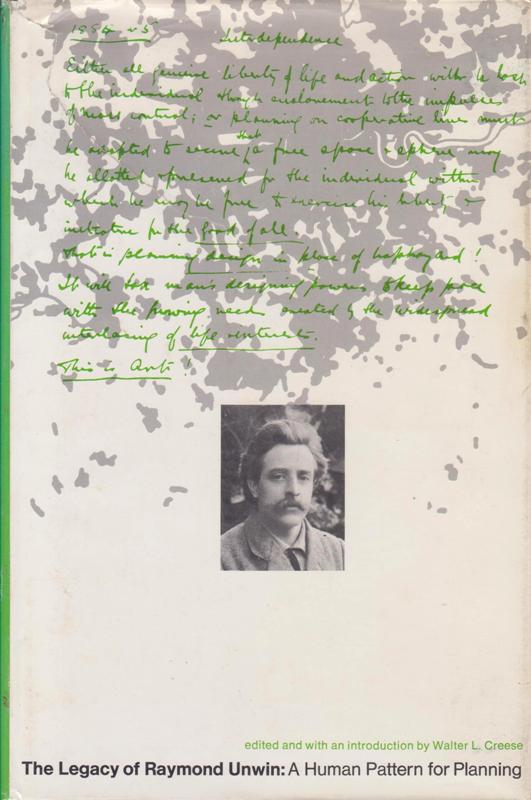 Interdependence
Either all genuine liberty of life and action will be lost
to the individual through enslavement to the impulses
of mass control; or planning on cooperative lines must
that
be adopted to secure a free space & sphere may
be allotted & preserved for the individual within
which he may be free to exercise his liberty &
initiative for the good of all.
That is planning design in place of haphazard!
It will tax man's designing powers to keep pace
with the growing needs created by the widespread
interlacing of life interests.
This is Art!
edited and with an introduction by Walter L. Creese
The Legacy of Raymond Unwin: A Human Pattern for Planning